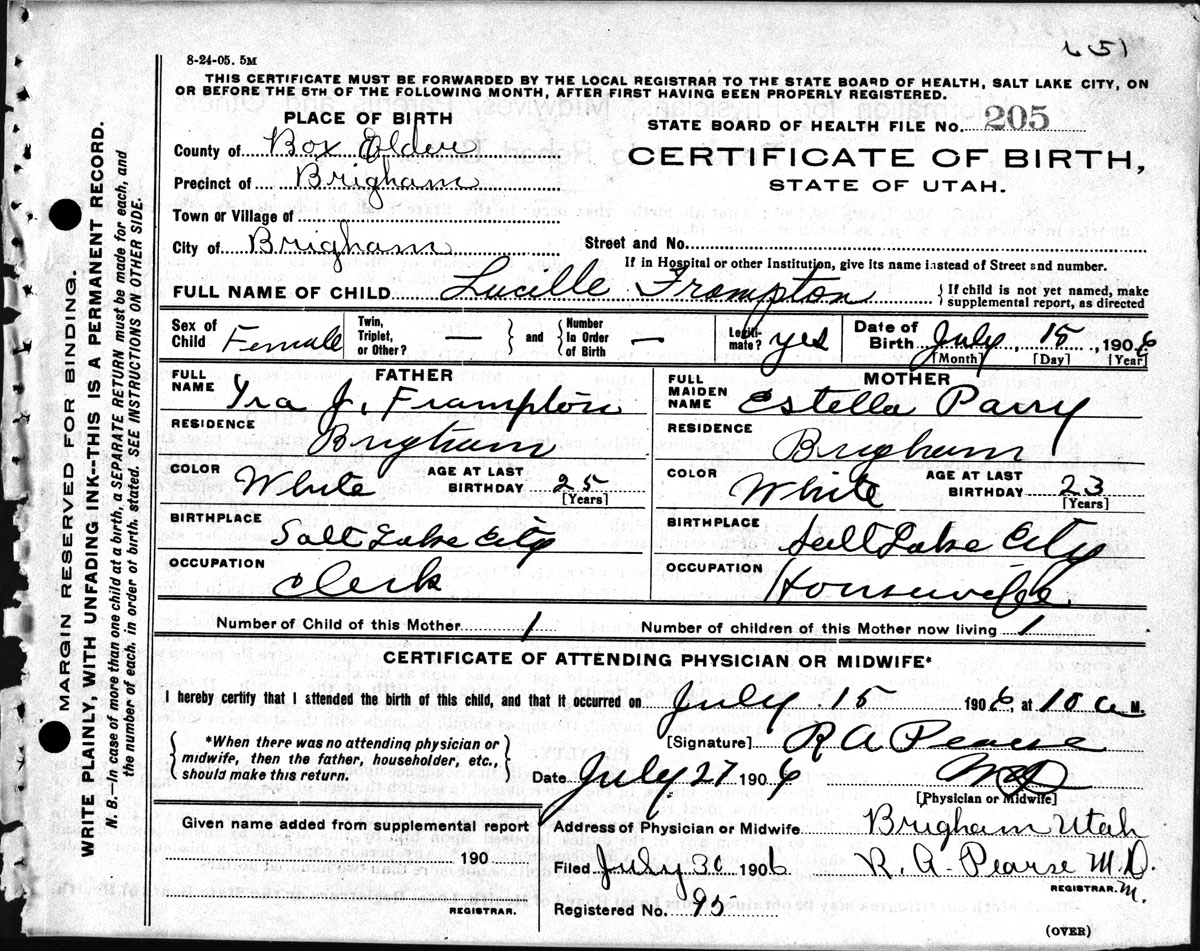 651
8-24-05. 5M
THIS CERTIFICATE MUST BE FORWARDED BY THE LOCAL REGISTRAR TO THE STATE BOARD OF HEALTH, SALT LAKE CITY, ON
OR BEFORE THE 5TH OF THE FOLLOWING MONTH, AFTER FIRST HAVING BEEN PROPERLY REGISTERED.
PLACE OF BIRTH
STATE BOARD OF HEALTH FILE NO. 205
County of Box Elder
CERTIFICATE OF BIRTH,
Precinct of Brigham
STATE OF UTAH.
Town or Village of
City of Brigham Street and No.
If in Hospital or other Institution, give its name instead of Street and number.
FULL NAME OF CHILD Lucille Frampton { If child is not yet named, make
supplemental report, as directed
Sex of Child Female Twin, Triplet, or Other? — } and { Number In Order of Birth — Legiti-mate? yes Date of Birth July, 15, 1906
[Month] [Day] [Year]
FATHER
FULL NAME Ira J. Frampton
RESIDENCE Brigham
COLOR White AGE AT LAST BIRTHDAY 25
[Years]
BIRTHPLACE Salt Lake City
OCCUPATION Clerk
MOTHER
FULL MAIDEN NAME Estella Parry
RESIDENCE Brigham
COLOR White AGE AT LAST BIRTHDAY 23
[Years]
BIRTHPLACE Salt Lake City
OCCUPATION Housewife
Number of Child of this Mother 1 Number of children of this Mother now living 1
CERTIFICATE OF ATTENDING PHYSICIAN OR MIDWIFE*
I hereby certify that I attended the birth of this child, and that it occurred on July 15 1906, at 10 a M.
{ *When there was no attending physician or
midwife, then the father, householder, etc.,
should make this return. }
[Signature] R A Pearse
Date July 27 1906 MD
[Physician or Midwife]
Given name added from supplemental report
190
REGISTRAR.
Address of Physician or Midwife Brigham Utah
Filed July 30 1906 R. A. Pearse M.D.
REGISTRAR. M.
Registered No. 95
(OVER)
MARGIN RESERVED FOR BINDING.
WRITE PLAINLY, WITH UNFADING INK--THIS IS A PERMANENT RECORD.
N. B.—In case of more than one child at a birth, a SEPARATE RETURN must be made for each, and
the number of each, in order of birth, stated. SEE INSTRUCTIONS ON OTHER SIDE.